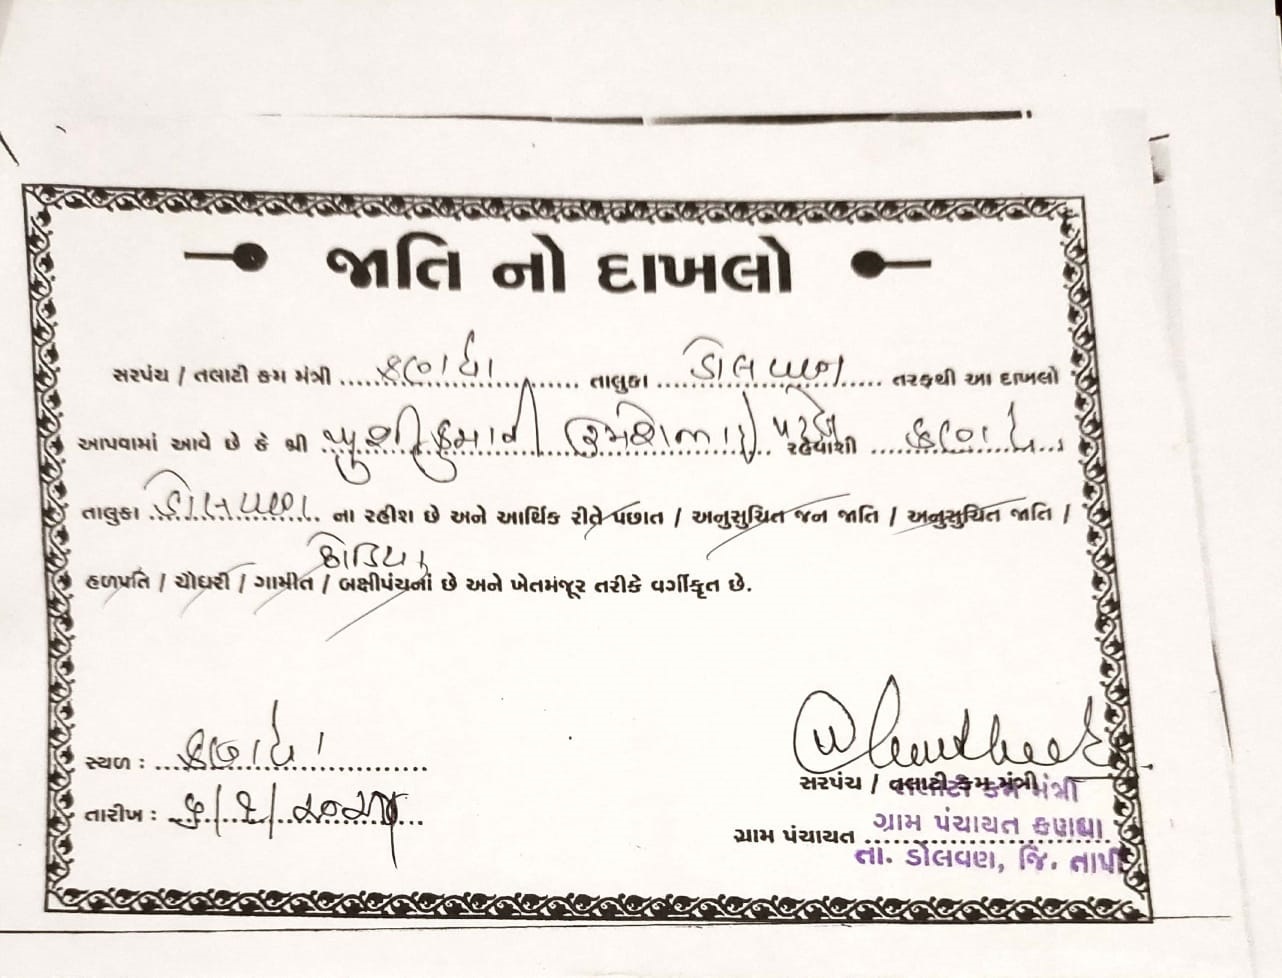 જાતિ નો દાખલો
સરપંચ / તલાટી કમ મંત્રી ..... કણધા ..... તાલુકા ..... ડોલવણ ..... તરફથી આ દાખલો
આપવામાં આવે છે કે શ્રી ..... ખુશીકુમારી રમેશભાઈ પટેલ ..... રહેવાશી ..... કણધા .....
તાલુકા ..... ડોલવણ ..... ના રહીશ છે અને આર્થિક રીતે પછાત / અનુસુચિત જન જાતિ / અનુસુચિત જાતિ /
હળપતિ / ચૌધરી / ગામીત / બક્ષીપંચનાં છે અને ખેતમંજૂર તરીકે વર્ગીકૃત છે.
સ્થળ : ..... કણધા .....
તારીખ :
સરપંચ / તલાટી કમ મંત્રી
તલાટી કમ મંત્રી
ગ્રામ પંચાયત .....
ગ્રામ પંચાયત કણધા
તા. ડોલવણ, જિ. તાપી